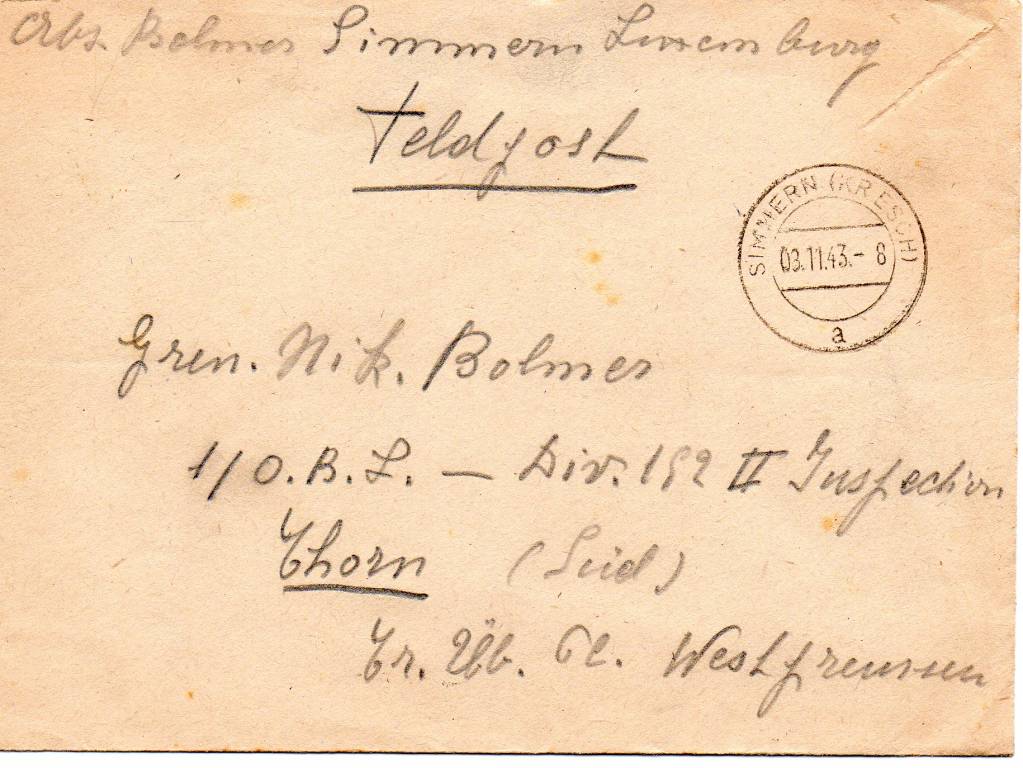 Abs. Bolmer Simmern Luxemburg
Feldpost
SIMMERN (KR ESCH)
03.11.43.- 8
a
Gren. Nik. Bolmer
1/O.B.L. — Div. 192 II Inspection
Thorn (Süd)
Tr. Üb. Pl. Westpreussen